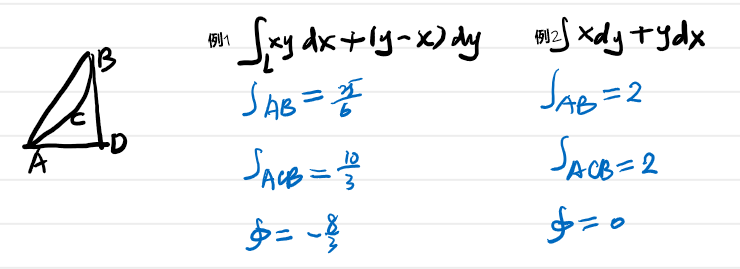 B
C
A
D
例1 ∫L xy dx+(y-x)dy
∫AB = 25/6
∫ACB = 10/3
∮ = -8/3
例2 ∫ xdy+ydx
∫AB = 2
∫ACB = 2
∮ = 0